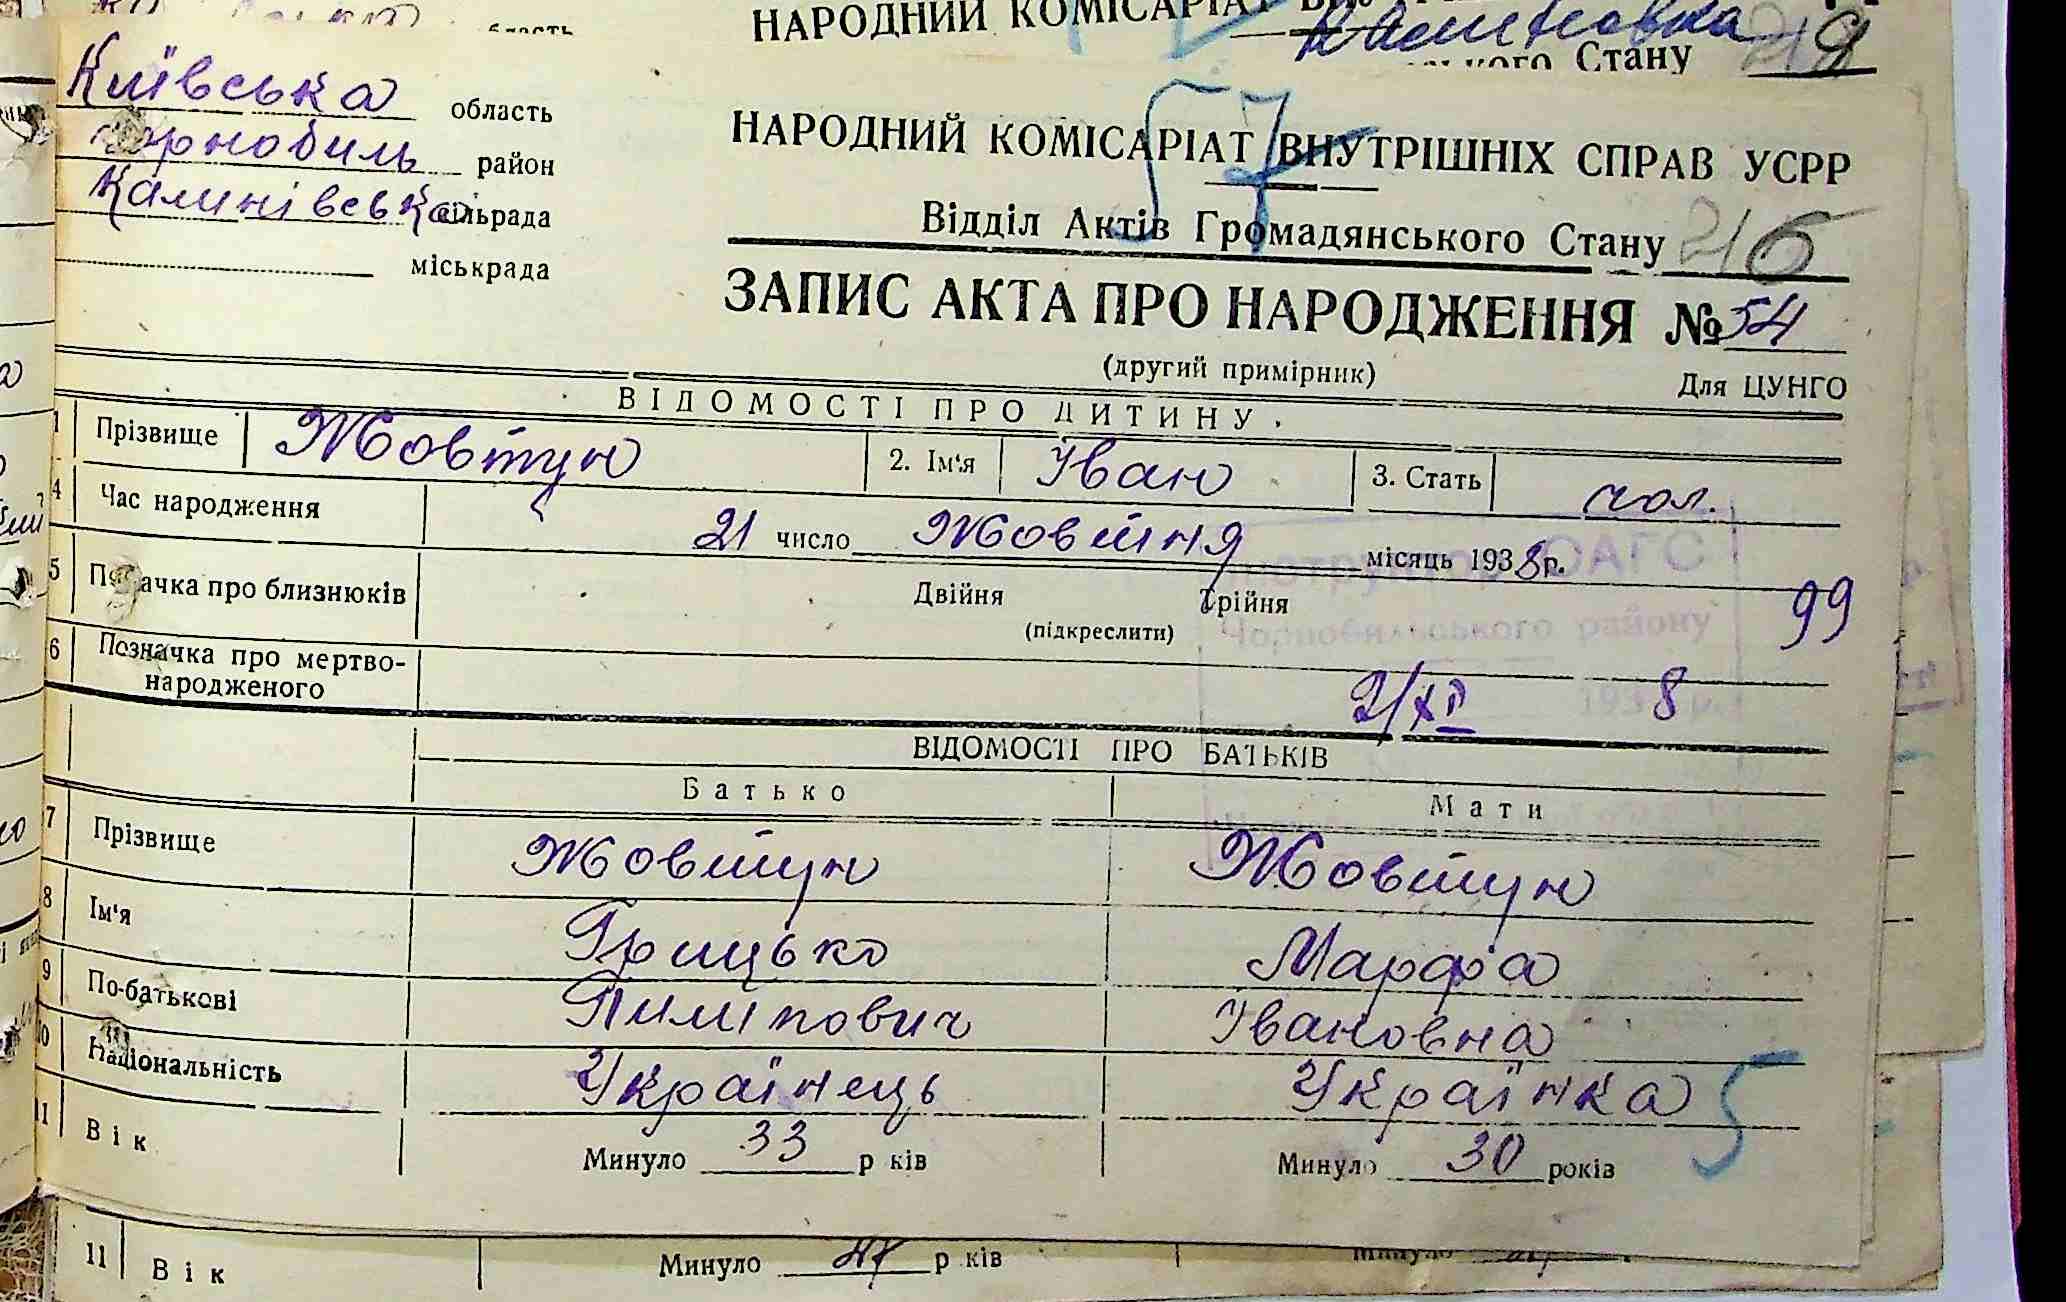 НАРОДНИЙ КОМІСАРІАТ
Стану
Київська область
Чорнобиль район
Калинівська сільрада
міськрада
НАРОДНИЙ КОМІСАРІАТ ВНУТРІШНІХ СПРАВ УСРР
57
Відділ Актів Громадянського Стану 216
ЗАПИС АКТА ПРО НАРОДЖЕННЯ № 54
(другий примірник) Для ЦУНГО
ВІДОМОСТІ ПРО ДИТИНУ.
1 Прізвище Жовтун 2. Ім'я Іван 3. Стать чол.
4 Час народження 21 число Жовтня місяць 1938 р.
5 Позначка про близнюків Двійня Трійня 99
(підкреслити)
6 Позначка про мертво-
народженого
Інструктор ОАГС
Чорнобильського району
2/XII 1938 р.
ВІДОМОСТІ ПРО БАТЬКІВ
Батько Мати
7 Прізвище Жовтун Жовтун
8 Ім'я Грицько Марфа
9 По-батькові Пилипович Івановна
10 Національність Українець Українка 5
11 Вік Минуло 33 р ків Минуло 30 років
11 Вік Минуло 47 р ків Минуло